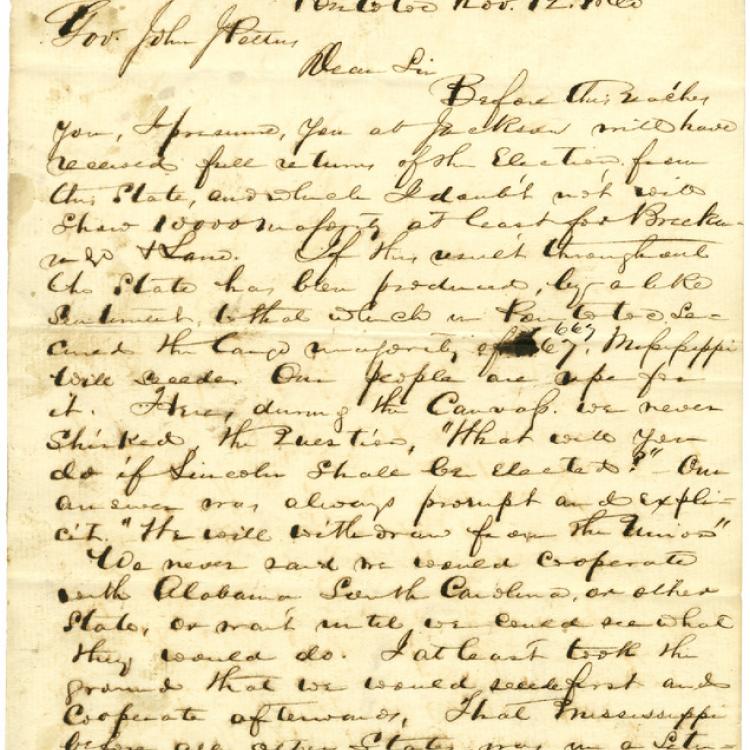 Pontotoc Nov. 12. 1860
Gov. John J Pettus
Dear Sir
Before this reaches
you, I presume, you at Jackson will have
received full returns of the Election, from
this State, and which I doubt not will
show 10000 majority at least for Brecken-
& Lane. If this result throughout
the State has been produced, by a like
sentiment, to that which in Pontotoc se-
cured the large majority of 667, Mississippi
will secede. Our people are ripe for
it. Here, during the Canvass. we never
shirked, the Question, "What will you
do if Lincoln shall be elected?" Our
answer was always prompt and expli-
cit. "We will withdraw from the Union"
We never said we would cooperate
with Alabama South Carolina, or other
State, or wait until we could see what
they would do. I at least took the
ground that we would secede first and
Cooperate afterwards, That Mississippi
before any other States was in a